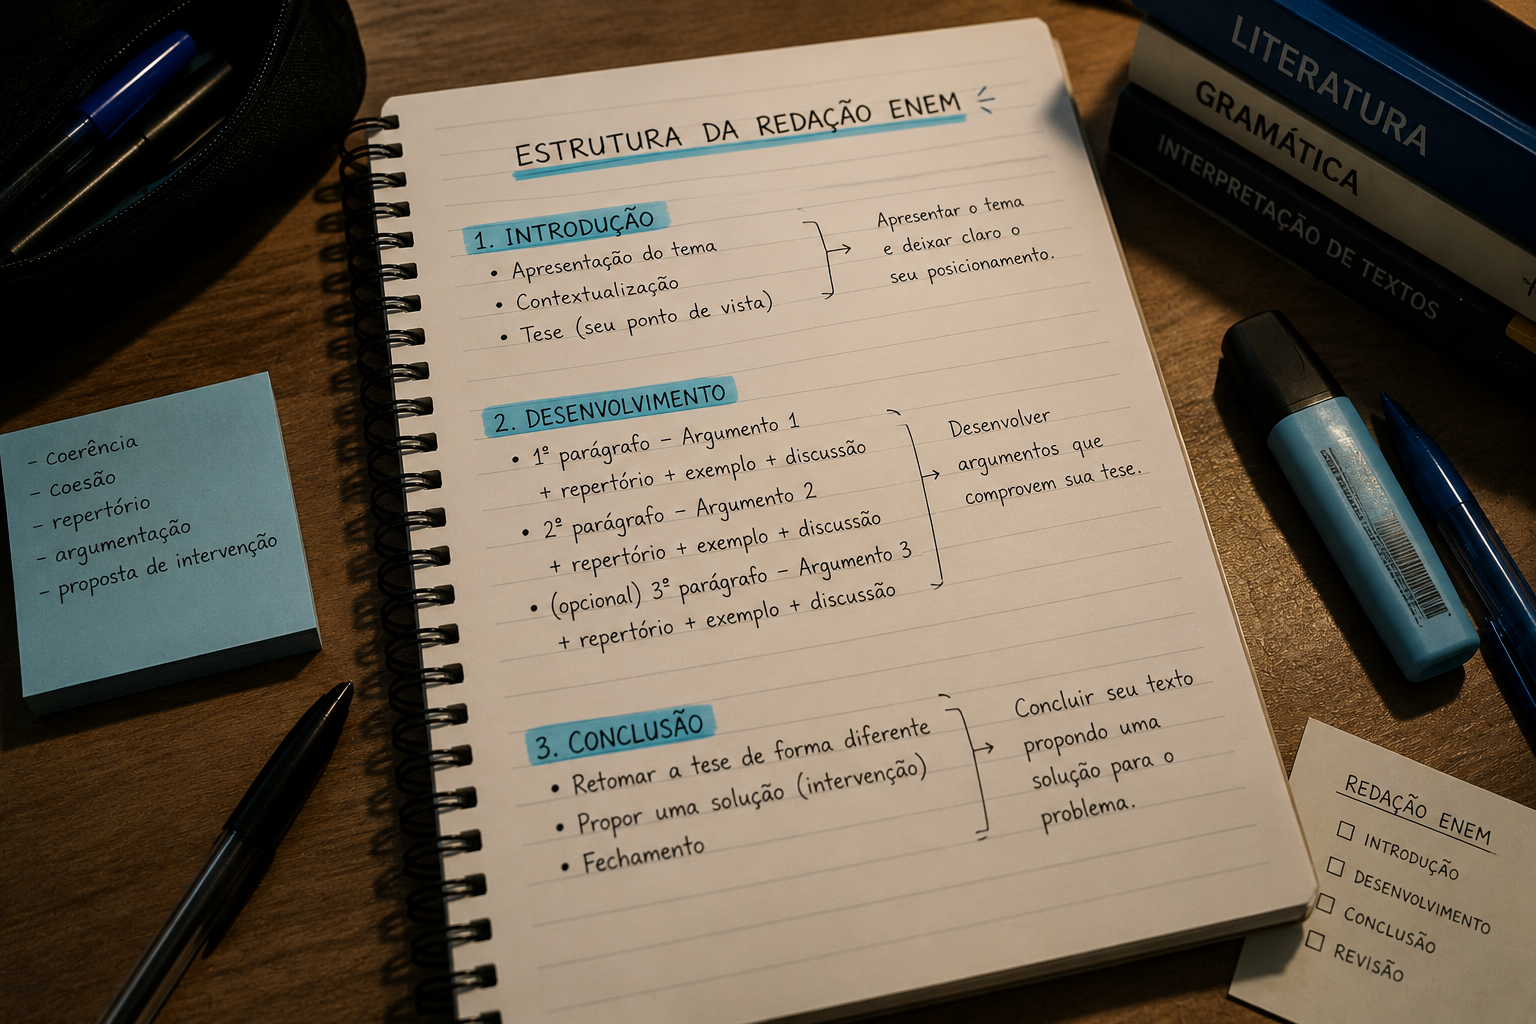 ESTRUTURA DA REDAÇÃO ENEM
1. INTRODUÇÃO
• Apresentação do tema
• Contextualização
• Tese (seu ponto de vista)
Apresentar o tema
e deixar claro o
seu posicionamento.
2. DESENVOLVIMENTO
• 1º parágrafo – Argumento 1
+ repertório + exemplo + discussão
• 2º parágrafo – Argumento 2
+ repertório + exemplo + discussão
• (opcional) 3º parágrafo – Argumento 3
+ repertório + exemplo + discussão
Desenvolver
argumentos que
comprovem sua tese.
3. CONCLUSÃO
• Retomar a tese de forma diferente
• Propor uma solução (intervenção)
• Fechamento
Concluir seu texto
propondo uma
solução para o
problema.
- coerência
- coesão
- repertório
- argumentação
- proposta de intervenção
LITERATURA
GRAMÁTICA
INTERPRETAÇÃO DE TEXTOS
REDAÇÃO ENEM
☐ INTRODUÇÃO
☐ DESENVOLVIMENTO
☐ CONCLUSÃO
☐ REVISÃO